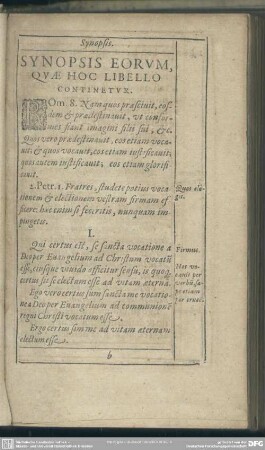 Synopsis.
SYNOPSIS EORVM,
QVÆ HOC LIBELLO
CONTINETVR.
ROm. 8. Nam quos præsciuit, eos-
dem & prædestinauit, vt confor-
mes fiant imagini filii sui, &c.
Quos vero prædestinauit, eos etiam voca-
uit: & quos vocauit, eos etiam iustificauit:
quos autem iustificauit, eos etiam glorifi-
cauit.
2. Petr. 1. Fratres, studete potius voca-
tionem & electionem vestram firmam ef-
ficere: hæc enim si feceritis, nunquam im-
pingetis.
I.
Qui certus est, se sancta vocatione a
Deo per Euangelium ad Christum vocatū
esse, eiusque viuido afficitur sensu, is quoq;
certus sit se electum esse ad vitam æternā.
Ego vero certus sum sancta me vocatio-
ne a Deo per Euangelium ad communionē
regni Christi vocatum esse.
Ergo certus sum me ad vitam æternam
electum esse.
b
Firmus.